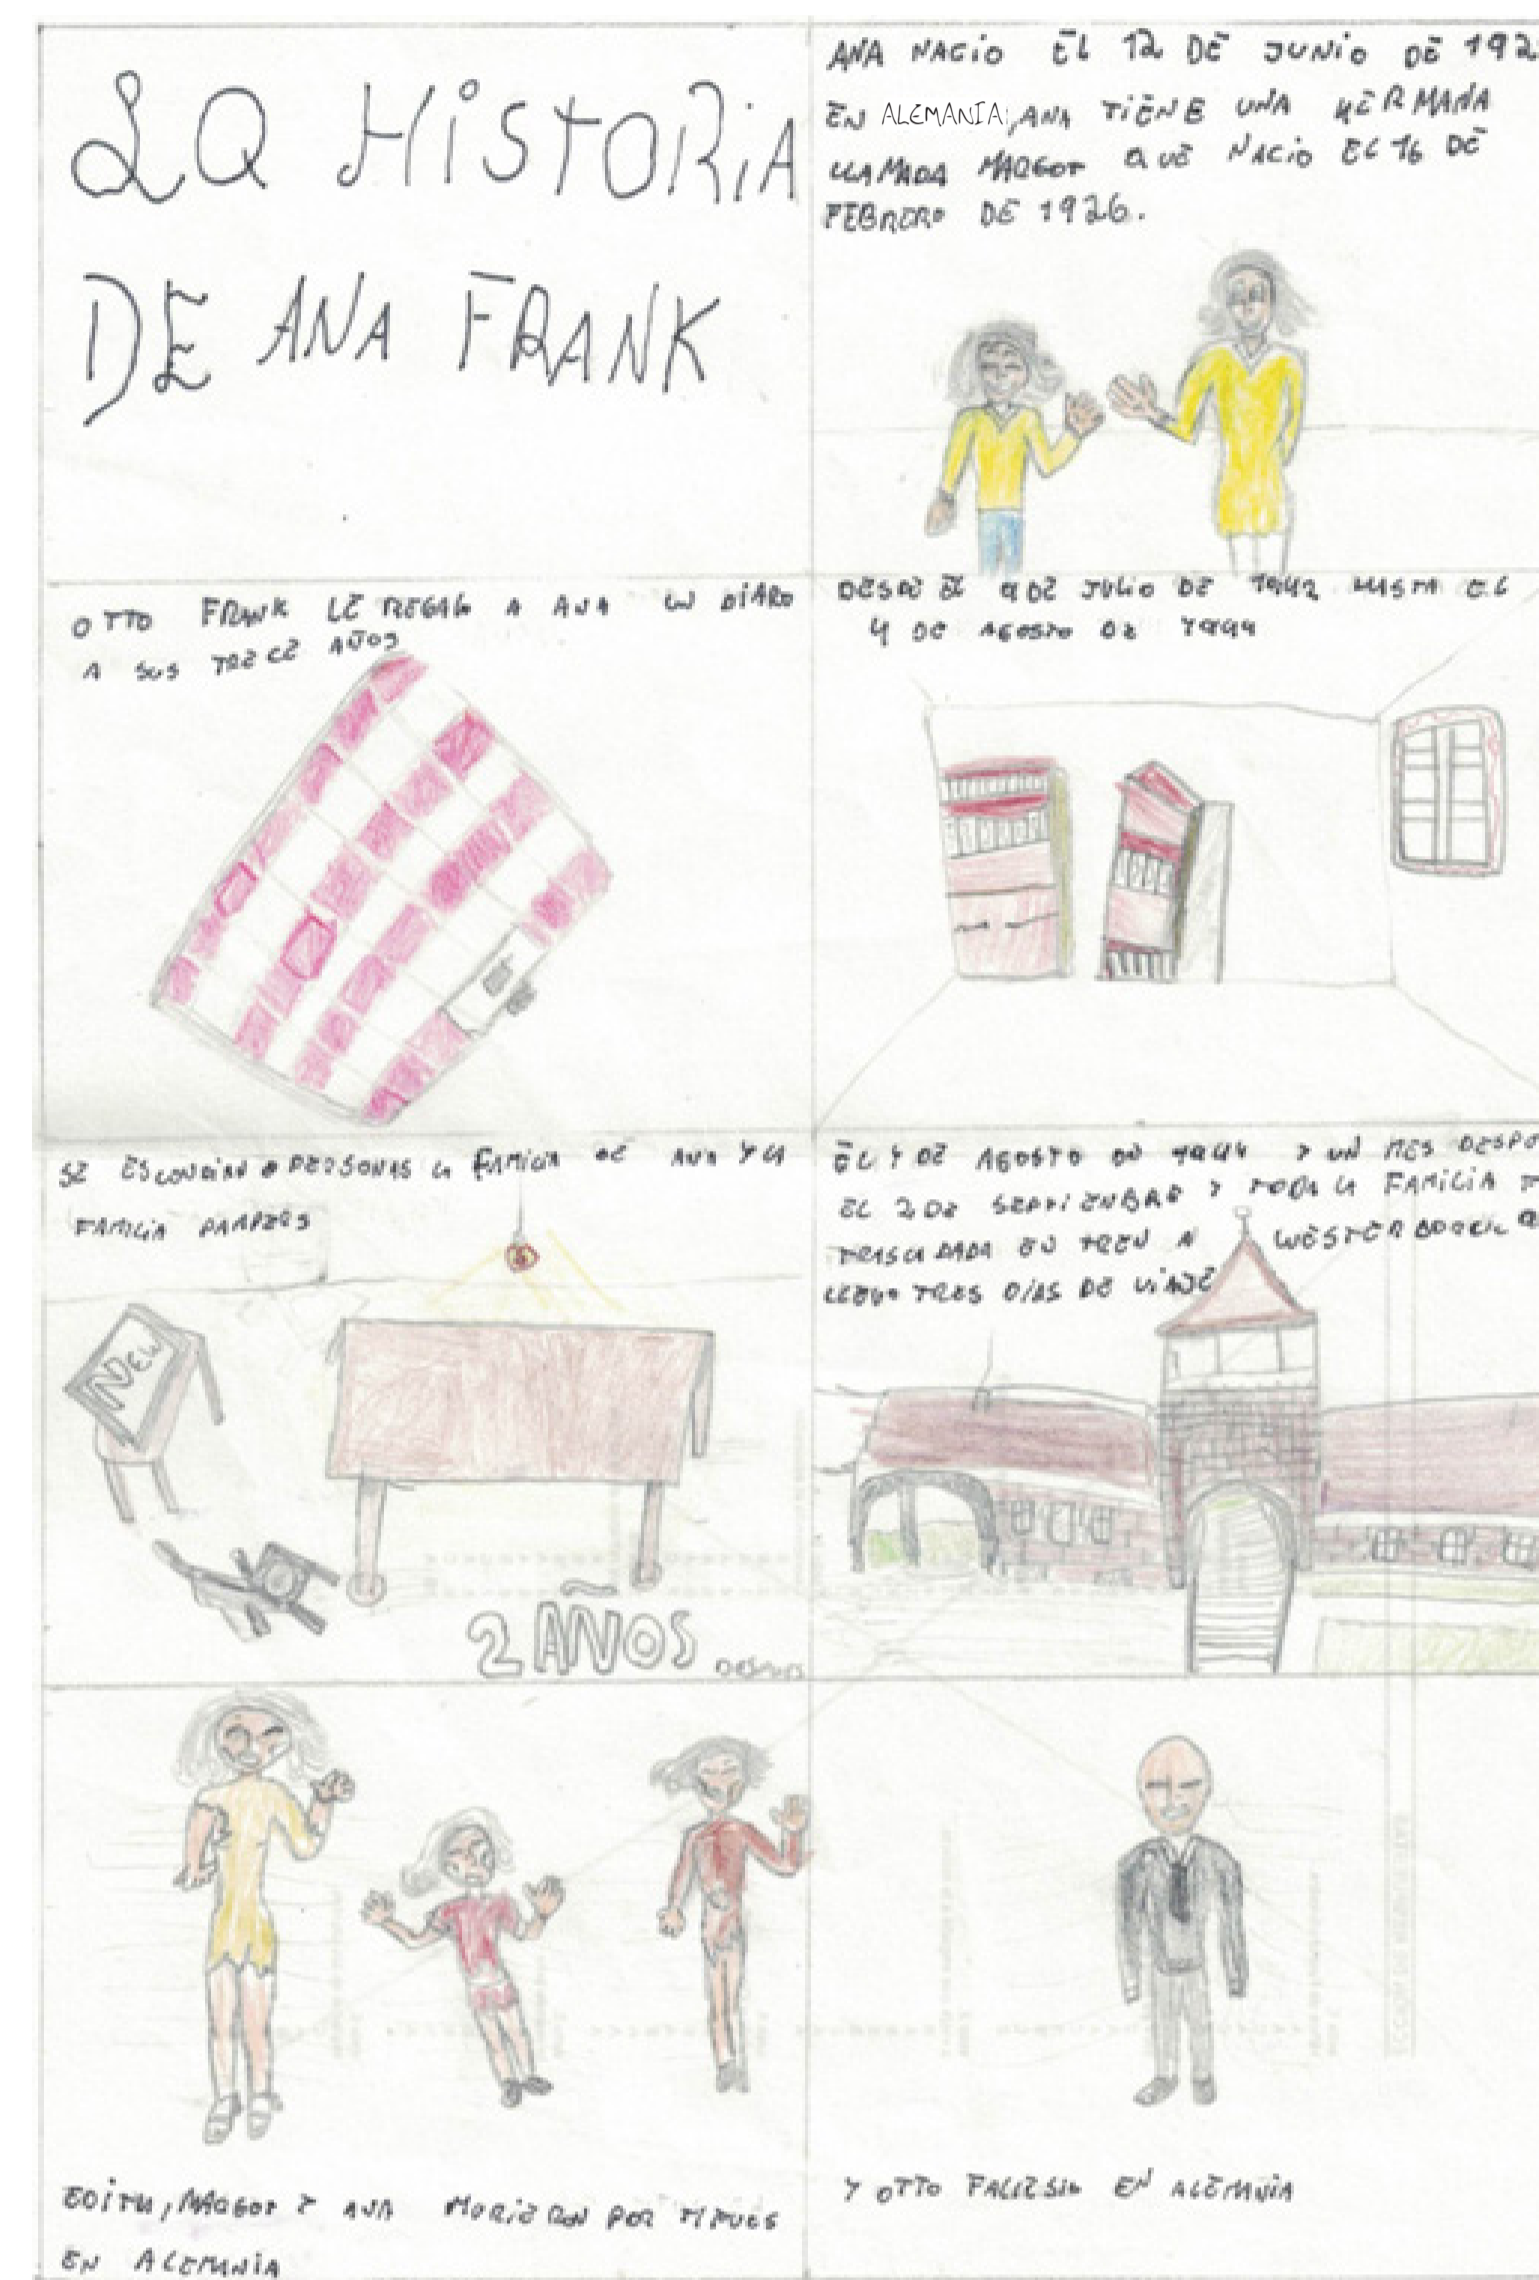 LA HISTORIA
DE ANA FRANK
ANA NACIO EL 12 DE JUNIO DE 192
EN ALEMANIA, ANA TIENE UNA HERMANA
LLAMADA MARGOT QUE NACIO EL 16 DE
FEBRERO DE 1926.
OTTO FRANK LE REGALO A ANA UN DIARO
A SUS TRECE AÑOS
DESDE EL 9 DE JULIO DE 1942 HASTA EL
4 DE AGOSTO DE 1944
SE ESCONDIAN 8 PERSONAS LA FAMILIA DE ANA Y LA
FAMILIA
NEW
2 AÑOS
DESPUES
EL 4 DE AGOSTO DE 1944 Y UN MES DESPU
EL 2 DE SEPTIENBRE Y TODA LA FAMILIA F
TRASLADADA EN TREN A WESTERBORK
TRES DIAS DE VIAJE
EDITH, MARGOT Y ANA MORIERON POR TIFUES
EN ALEMANIA
Y OTTO FALLESIO EN ALEMANIA